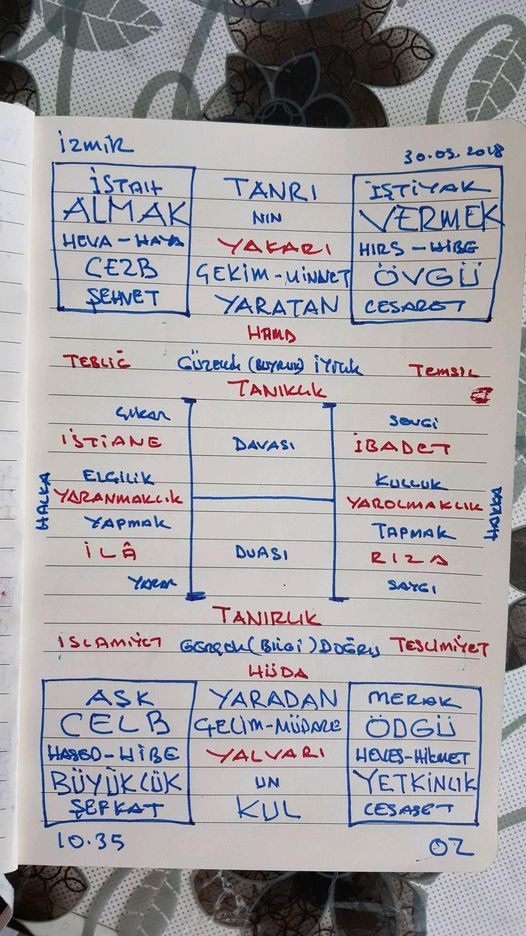 İzmir 30.05.2018
İSTAH TANRI İŞTİYAK
ALMAK NIN VERMEK
HEVA-HAYA YAKARI HIRS-HİBE
CEZB ÇEKİM-MİNNET ÖVGÜ
ŞEHVET YARATAN CESARET
HAMD
TEBLİĞ GÜZELLİK (BUYRUK) İYİLİK TEMSİL
TANIKLIK
ÇIKAR SEVGİ
İSTİANE DAVASI İBADET
ELGİLİK KULLUK
HALKA YARANMAKLIK YAROLMAKLIK
YAPMAK TAPMAK
İLÂ DUASI RIZA
YARAR SAYGI
TANIRLIK
İSLAMİYET GERÇEK (BİLGİ) DOĞRU TESLİMİYET
HÜDA
AŞK YARADAN MERAK
CELB GELİM-MÜDARE ÖDGÜ
HASED-HİBE YALVARI HEVES-HİKMET
BÜYÜKLÜK UN YETKİNLİK
ŞEFKAT KUL CESARET
10.35 OZ